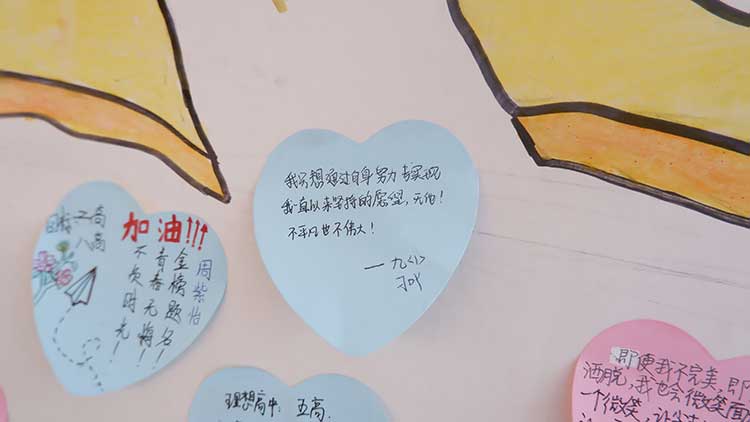 目标二高
八高
加油!!!
周紫怡
金榜题名!
青春无悔!
不负时光!
我只想通过自身努力去实现
我一直以来坚持的愿望,无怕!
不平凡也不伟大!
一九<1>
理想高中: 五高,
即便我不完美,即
洒脱,我也会微笑面
一个微笑,让